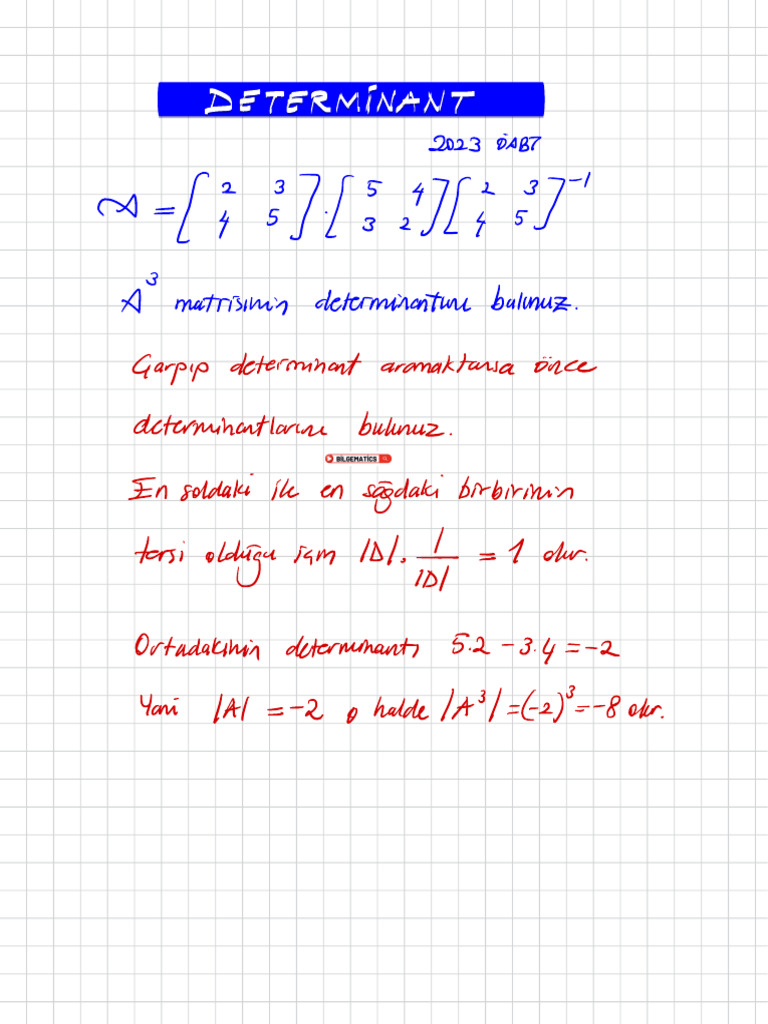 DETERMİNANT
2023 ÖABT
A = [2 3; 4 5] . [5 4; 3 2] [2 3; 4 5]^-1
A^3 matrisinin determinantını bulunuz.
Çarpıp determinant aramaktansa önce
determinantlarını bulunuz.
BİLGEMATİCS
En soldaki ile en sağdaki birbirinin
tersi olduğu için |D| . 1/|D| = 1 olur.
Ortadakinin determinantı 5.2 - 3.4 = -2
Yani |A| = -2 o halde |A^3| = (-2)^3 = -8 olur.